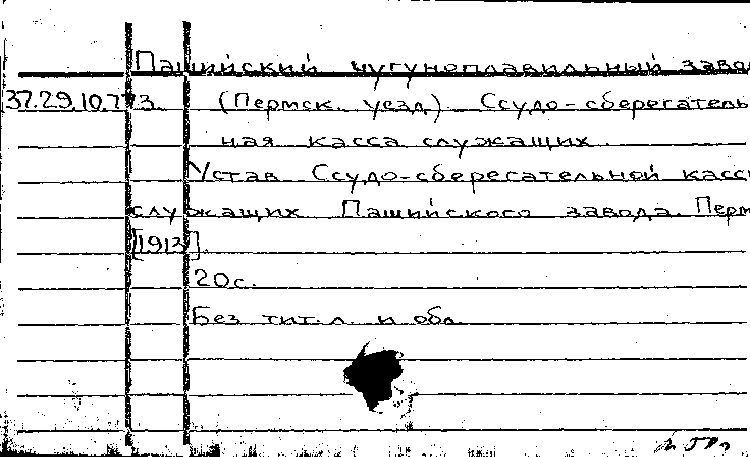 Пашийский чугуноплавильный заво
37.29.10.773. (Пермск. уезд) Ссудо-сберегатель
ная касса служащих.
Устав Ссудо-сберегательной касс
служащих Пашийского завода. Перм
[1913].
20с.
Без тит.л. и обл.